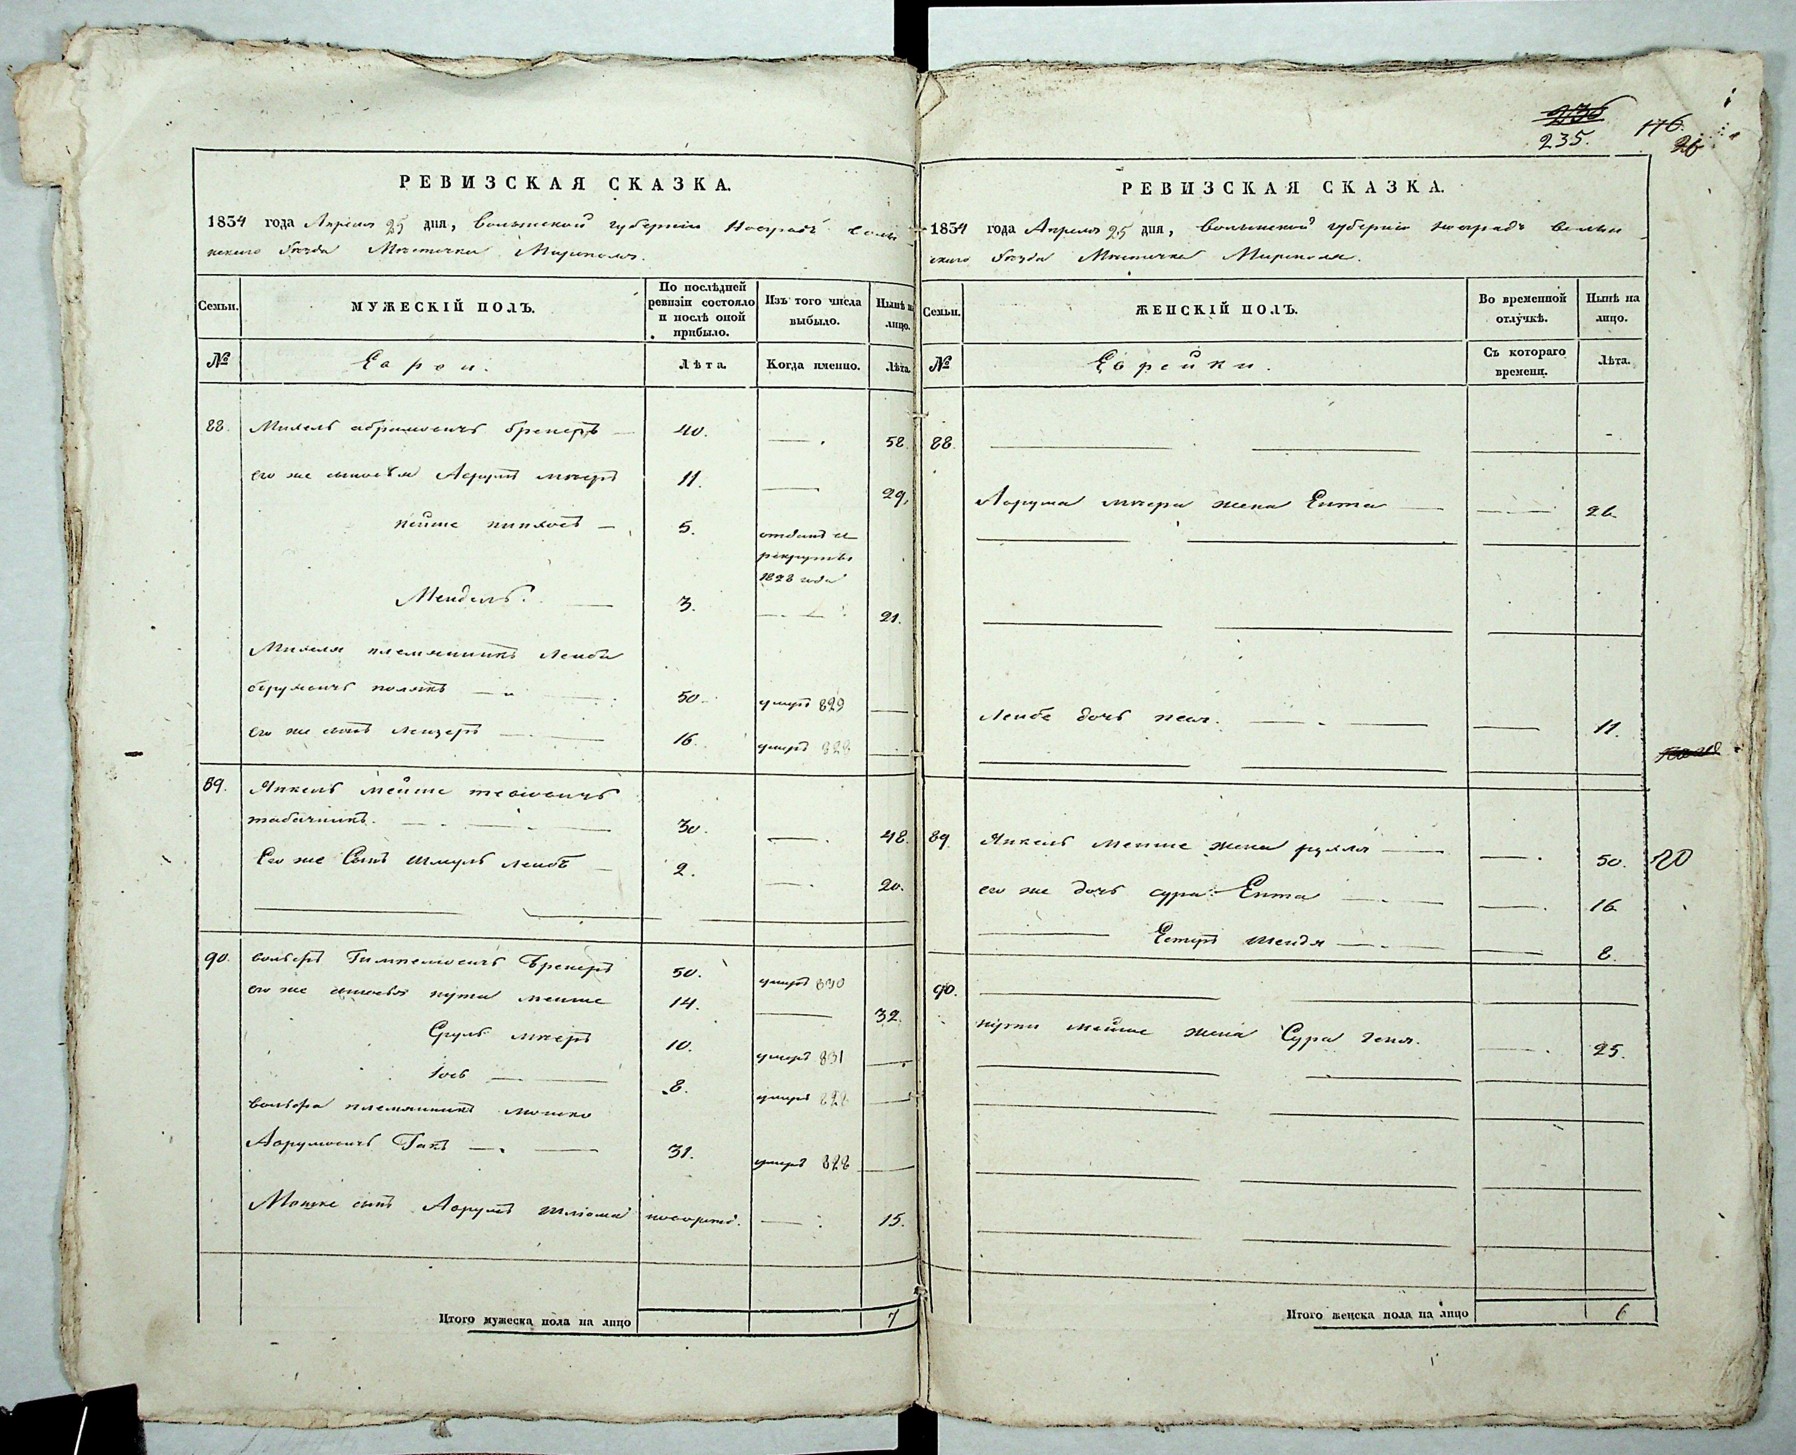 235.
116.
26
РЕВИЗСКАЯ СКАЗКА.
1834 года Апреля 25 дня, Волынской губернии Новградъ Волын
скаго уѣзда Мѣстечка Мирополя.
Семьи.
МУЖЕСКІЙ ПОЛЪ.
По послѣдней ревизіи состояло и послѣ оной прибыло.
Изъ того числа выбыло.
Нынѣ на лицо.
№
Евреи.
Лѣта.
Когда именно.
Лѣта.
88. Михель абрамовичъ брекеръ 40. 58.
его же сыновья Аврумъ мееръ 11. 29.
пейше пинхосъ 5. отданъ въ
рекруты
1828 года
Мендель. 3. 21.
Михеля племянникъ Лейба
50. умеръ 829
его же сынъ Лейзеръ 16. умеръ 828
89. Янкель Мейше
табачникъ. 30. 48.
Его же Сынъ Шмуль Лейбъ 2. 20.
90. вольфъ Гимпелевичъ Брекеръ 50. умеръ 830
его же сыновья нута мейше 14. 32.
Сруль мееръ 10. умеръ 831
Іось 8. умеръ 828
вольфа племянникъ мошко
Аврумовичъ Гакъ 31. умеръ 828
Мошке сынъ Аврумъ шлёма новорожд. 15.
Итого мужеска пола на лицо 7
РЕВИЗСКАЯ СКАЗКА.
1834 года Апреля 25 дня, волынской губернии новградъ волын
скаго уѣзда Мѣстечка Мирополя.
Семьи.
ЖЕНСКІЙ ПОЛЪ.
Во временной отлучкѣ.
Нынѣ на лицо.
№
Еврейки.
Съ котораго времени.
Лѣта.
88.
Аврума меера жена Ента 26.
Лейбе дочь 11.
89. Янкель мейше жена рухля 50.
20
его же дочь сура Ента 16.
Естеръ шейдя 8.
90.
нутки мейше жена Сура геня. 25.
Итого женска пола на лицо 6